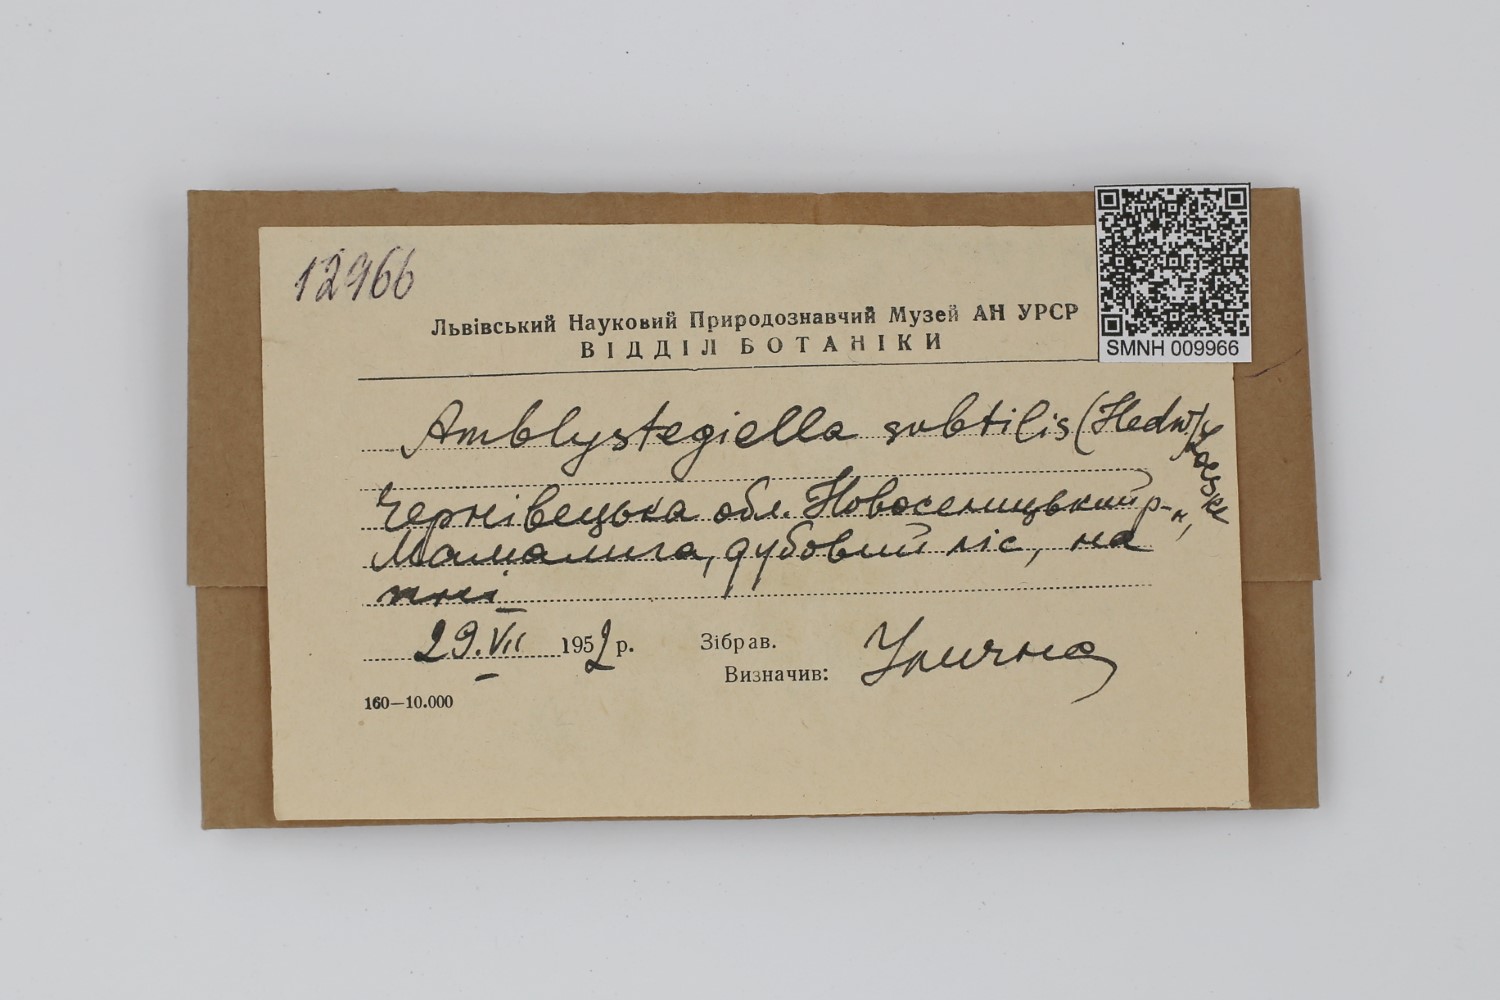 12966
Львівський Науковий Природознавчий Музей АН УРСР
ВІДДІЛ БОТАНІКИ
SMNH 009966
Amblystegiella subtilis (Hedw.) Loeske
Чернівецька обл. Новоселицький р-н,
Мамалига, дубовий ліс, на
пні
29.VII 1952 р.
Зібрав.
Визначив: Улична
160—10.000